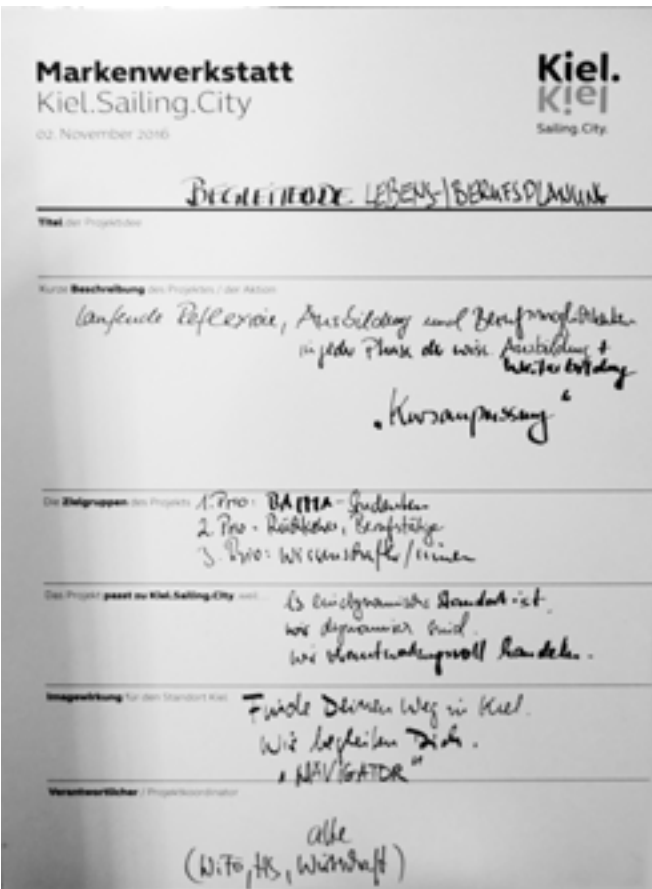 Markenwerkstatt
Kiel.Sailing.City
02. November 2016
Kiel.
Kiel
Sailing.City.
BEGLEITENDE LEBENS-/BERUFSPLANUNG
Titel der Projektidee
Kurze Beschreibung des Projektes / der Aktion
laufende Reflexion, Ausbildung und Berufsmöglichkeiten
in jeder Phase der wiss. Ausbildung +
Weiterbildung
"Kursanpassung"
Die Zielgruppen des Projekts 1. Prio: BA/MA-Studenten
2. Prio: Rückkehrer, Berufstätige
3. Prio: Wissenschaftler/innen
Das Projekt passt zu Kiel.Sailing.City weil... Es ein dynamischer Standort ist.
wir dynamisch sind.
wir verantwortungsvoll handeln.
Imagewirkung für den Standort Kiel Finde Deinen Weg in Kiel.
Wir begleiten Dich.
"NAVIGATOR"
Verantwortlicher / Projektkoordinator
alle
(WiFö, HS, Wirtschaft)